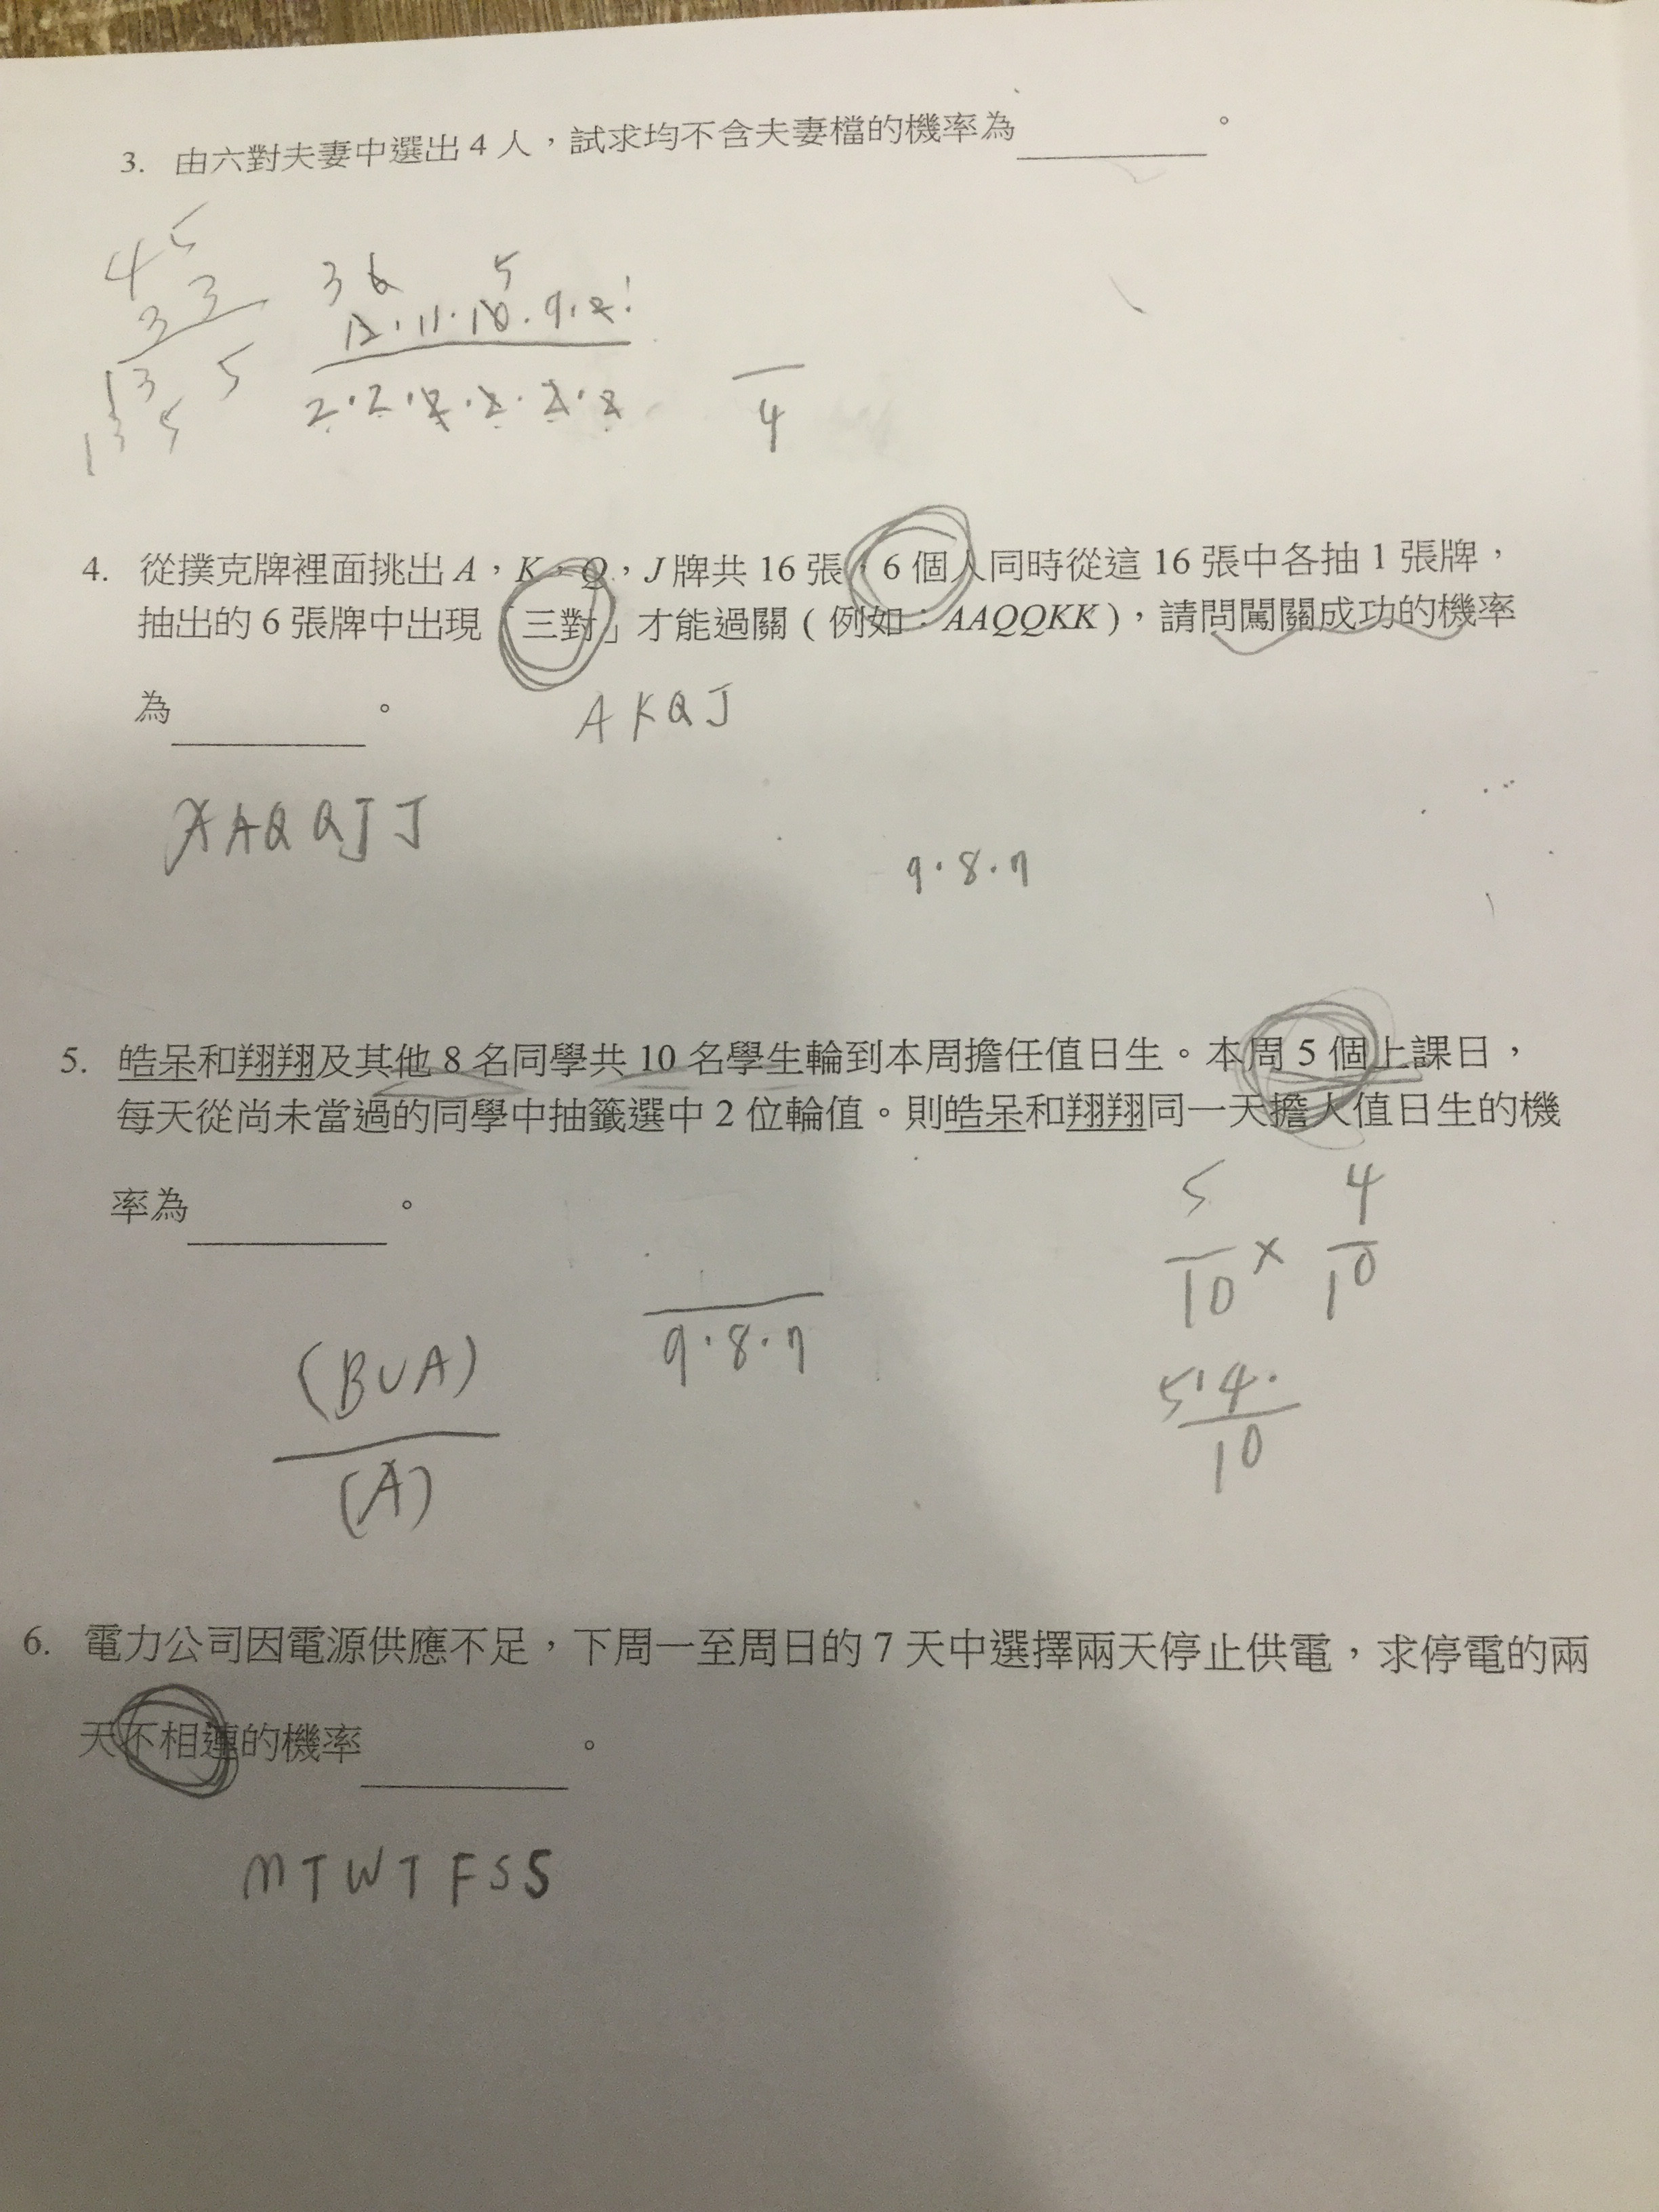 3. 由六對夫妻中選出 4 人，試求均不含夫妻檔的機率為________。
4 5
3 3
1 3 5
1 3 5
3 6 5
12·11·10·9·8!
2·2·2·2·2·2
4
4. 從撲克牌裡面挑出 A，K，Q，J 牌共 16 張，6 個人同時從這 16 張中各抽 1 張牌，
抽出的 6 張牌中出現「三對」才能過關 ( 例如：AAQQKK )，請問闖關成功的機率
為________。
A K Q J
A A Q Q J J
9·8·7
5. 皓呆和翔翔及其他 8 名同學共 10 名學生輪到本周擔任值日生。本周 5 個上課日，
每天從尚未當過的同學中抽籤選中 2 位輪值。則皓呆和翔翔同一天擔人值日生的機
率為________。
5 4
10 × 10
9·8·7
(B∪A)
(A)
5·4·
10
6. 電力公司因電源供應不足，下周一至周日的 7 天中選擇兩天停止供電，求停電的兩
天不相連的機率________。
M T W T F S S